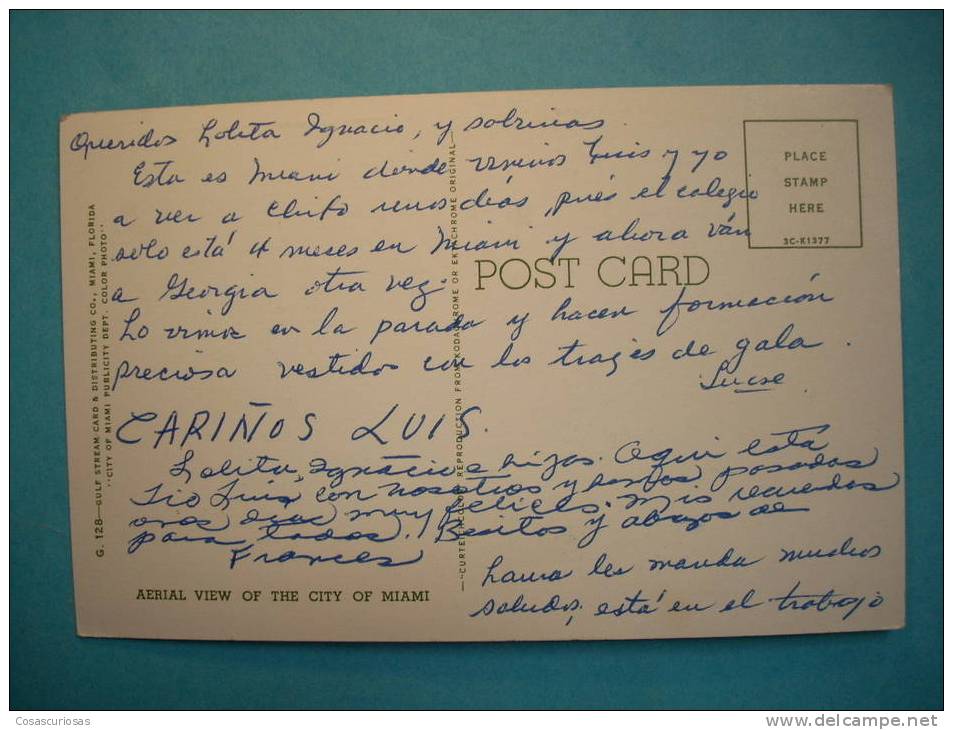 Queridos Lolita Ignacio, y sobrinas.
Esta es Miami donde vinimos Luis y yo
a ver a Chito unos días, pués el colegio
solo está 4 meses en Miami y ahora ván
a Georgia otra vez.
Lo vimos en la parada y hacen formación
preciosa vestidos con los trajes de gala.
CARIÑOS LUIS.
Lolita, Ignacio e hijos. Aqui está
Tio Luis con nosotros y hemos pasados
unos días muy felices. Mis recuerdos
para todos. Besitos y abrazos de
Frances
Laura les manda muchos
saludos, está en el trabajo
PLACE
STAMP
HERE
3C-K1377
POST CARD
G. 128—GULF STREAM CARD & DISTRIBUTING CO., MIAMI, FLORIDA
"CITY OF MIAMI PUBLICITY DEPT. COLOR PHOTO"
REPRODUCTION FROM KODACHROME OR EKTACHROME ORIGINAL—
AERIAL VIEW OF THE CITY OF MIAMI
Cosascuriosas
www.delcampe.net